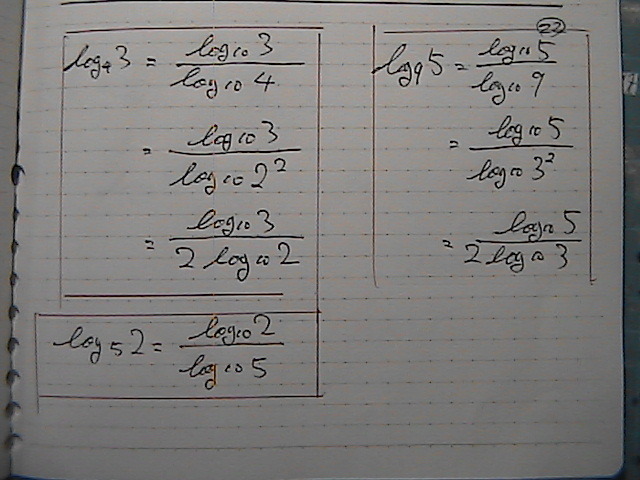 log₄3 = log₁₀3 / log₁₀4
= log₁₀3 / log₁₀2²
= log₁₀3 / 2 log₁₀2
log₅2 = log₁₀2 / log₁₀5
22
log₉5 = log₁₀5 / log₁₀9
= log₁₀5 / log₁₀3²
= log₁₀5 / 2 log₁₀3